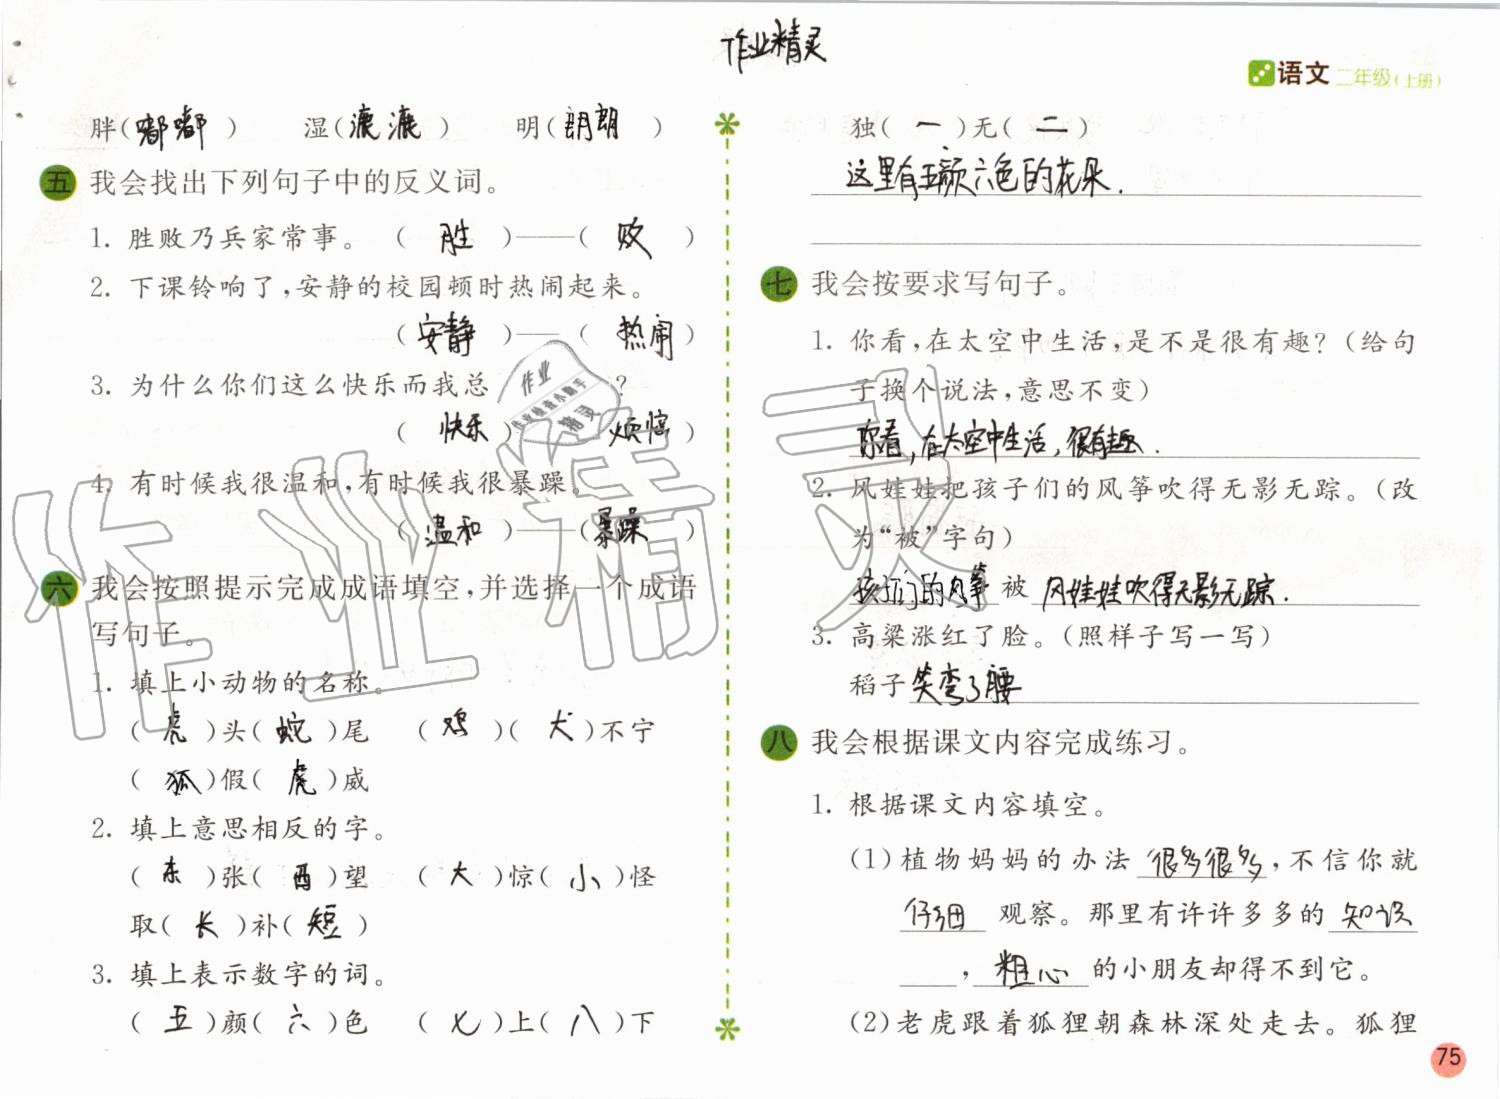 作业精灵
语文 二年级(上册)
胖(嘟嘟) 湿(漉漉) 明(朗朗)
五 我会找出下列句子中的反义词。
1. 胜败乃兵家常事。 (胜)——(败)
2. 下课铃响了,安静的校园顿时热闹起来。
(安静)——(热闹)
3. 为什么你们这么快乐而我总 ?
(快乐) 烦恼)
4. 有时候我很温和,有时候我很暴躁。
(温和)——(暴躁)
六 我会按照提示完成成语填空,并选择一个成语
写句子。
1. 填上小动物的名称。
(虎)头(蛇)尾 (鸡)(犬)不宁
(狐)假(虎)威
2. 填上意思相反的字。
(东)张(西)望 (大)惊(小)怪
取(长)补(短)
3. 填上表示数字的词。
(五)颜(六)色 (七)上(八)下
独(一)无(二)
这里有五颜六色的花朵.
七 我会按要求写句子。
1. 你看,在太空中生活,是不是很有趣?(给句
子换个说法,意思不变)
你看,在太空中生活,很有趣.
2. 风娃娃把孩子们的风筝吹得无影无踪。(改
为“被”字句)
孩子们的风筝 被 风娃娃吹得无影无踪.
3. 高粱涨红了脸。(照样子写一写)
稻子笑弯了腰
八 我会根据课文内容完成练习。
1. 根据课文内容填空。
(1)植物妈妈的办法 很多很多 ,不信你就
仔细 观察。那里有许许多多的 知识
,粗心 的小朋友却得不到它。
(2)老虎跟着狐狸朝森林深处走去。狐狸
75
作业
作业检查小助手
精灵
作业精灵